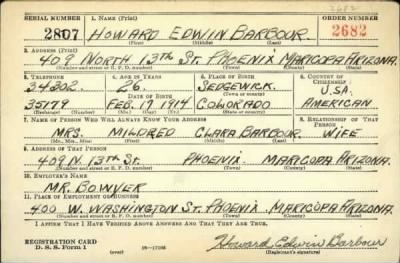 2682
SERIAL NUMBER 1. NAME (Print) ORDER NUMBER
2807 HOWARD EDWIN BARBOUR. 2682
(First) (Middle) (Last)
2. ADDRESS (Print)
409 NORTH 13TH ST. PHOENIX MARICOPA ARIZONA.
(Number and street or R. F. D. number) (Town) (County) (State)
3. TELEPHONE 4. AGE IN YEARS 5. PLACE OF BIRTH 6. COUNTRY OF CITIZENSHIP
34202. 26. SEDGEWICK. U.S.A.
DATE OF BIRTH (Town or county)
35179 FEB. 17 1914 COLORADO AMERICAN
(Mo.) (Day) (Yr.) (State or country)
7. NAME OF PERSON WHO WILL ALWAYS KNOW YOUR ADDRESS 8. RELATIONSHIP OF THAT PERSON
MRS. MILDRED CLARA BARBOUR. WIFE
(Mr., Mrs., Miss) (First) (Middle) (Last)
9. ADDRESS OF THAT PERSON
409 N. 13TH ST. PHOENIX. MARICOPA ARIZONA.
(Number and street or R. F. D. number) (Town) (County) (State)
10. EMPLOYER'S NAME
MR. BOWYER
11. PLACE OF EMPLOYMENT OR BUSINESS
400 W. WASHINGTON ST. PHOENIX. MARICOPA ARIZONA.
(Number and street or R. F. D. number) (Town) (County) (State)
I AFFIRM THAT I HAVE VERIFIED ABOVE ANSWERS AND THAT THEY ARE TRUE.
REGISTRATION CARD
D. S. S. Form 1 (over) 16—17105 Howard Edwin Barbour
(Registrant's signature)